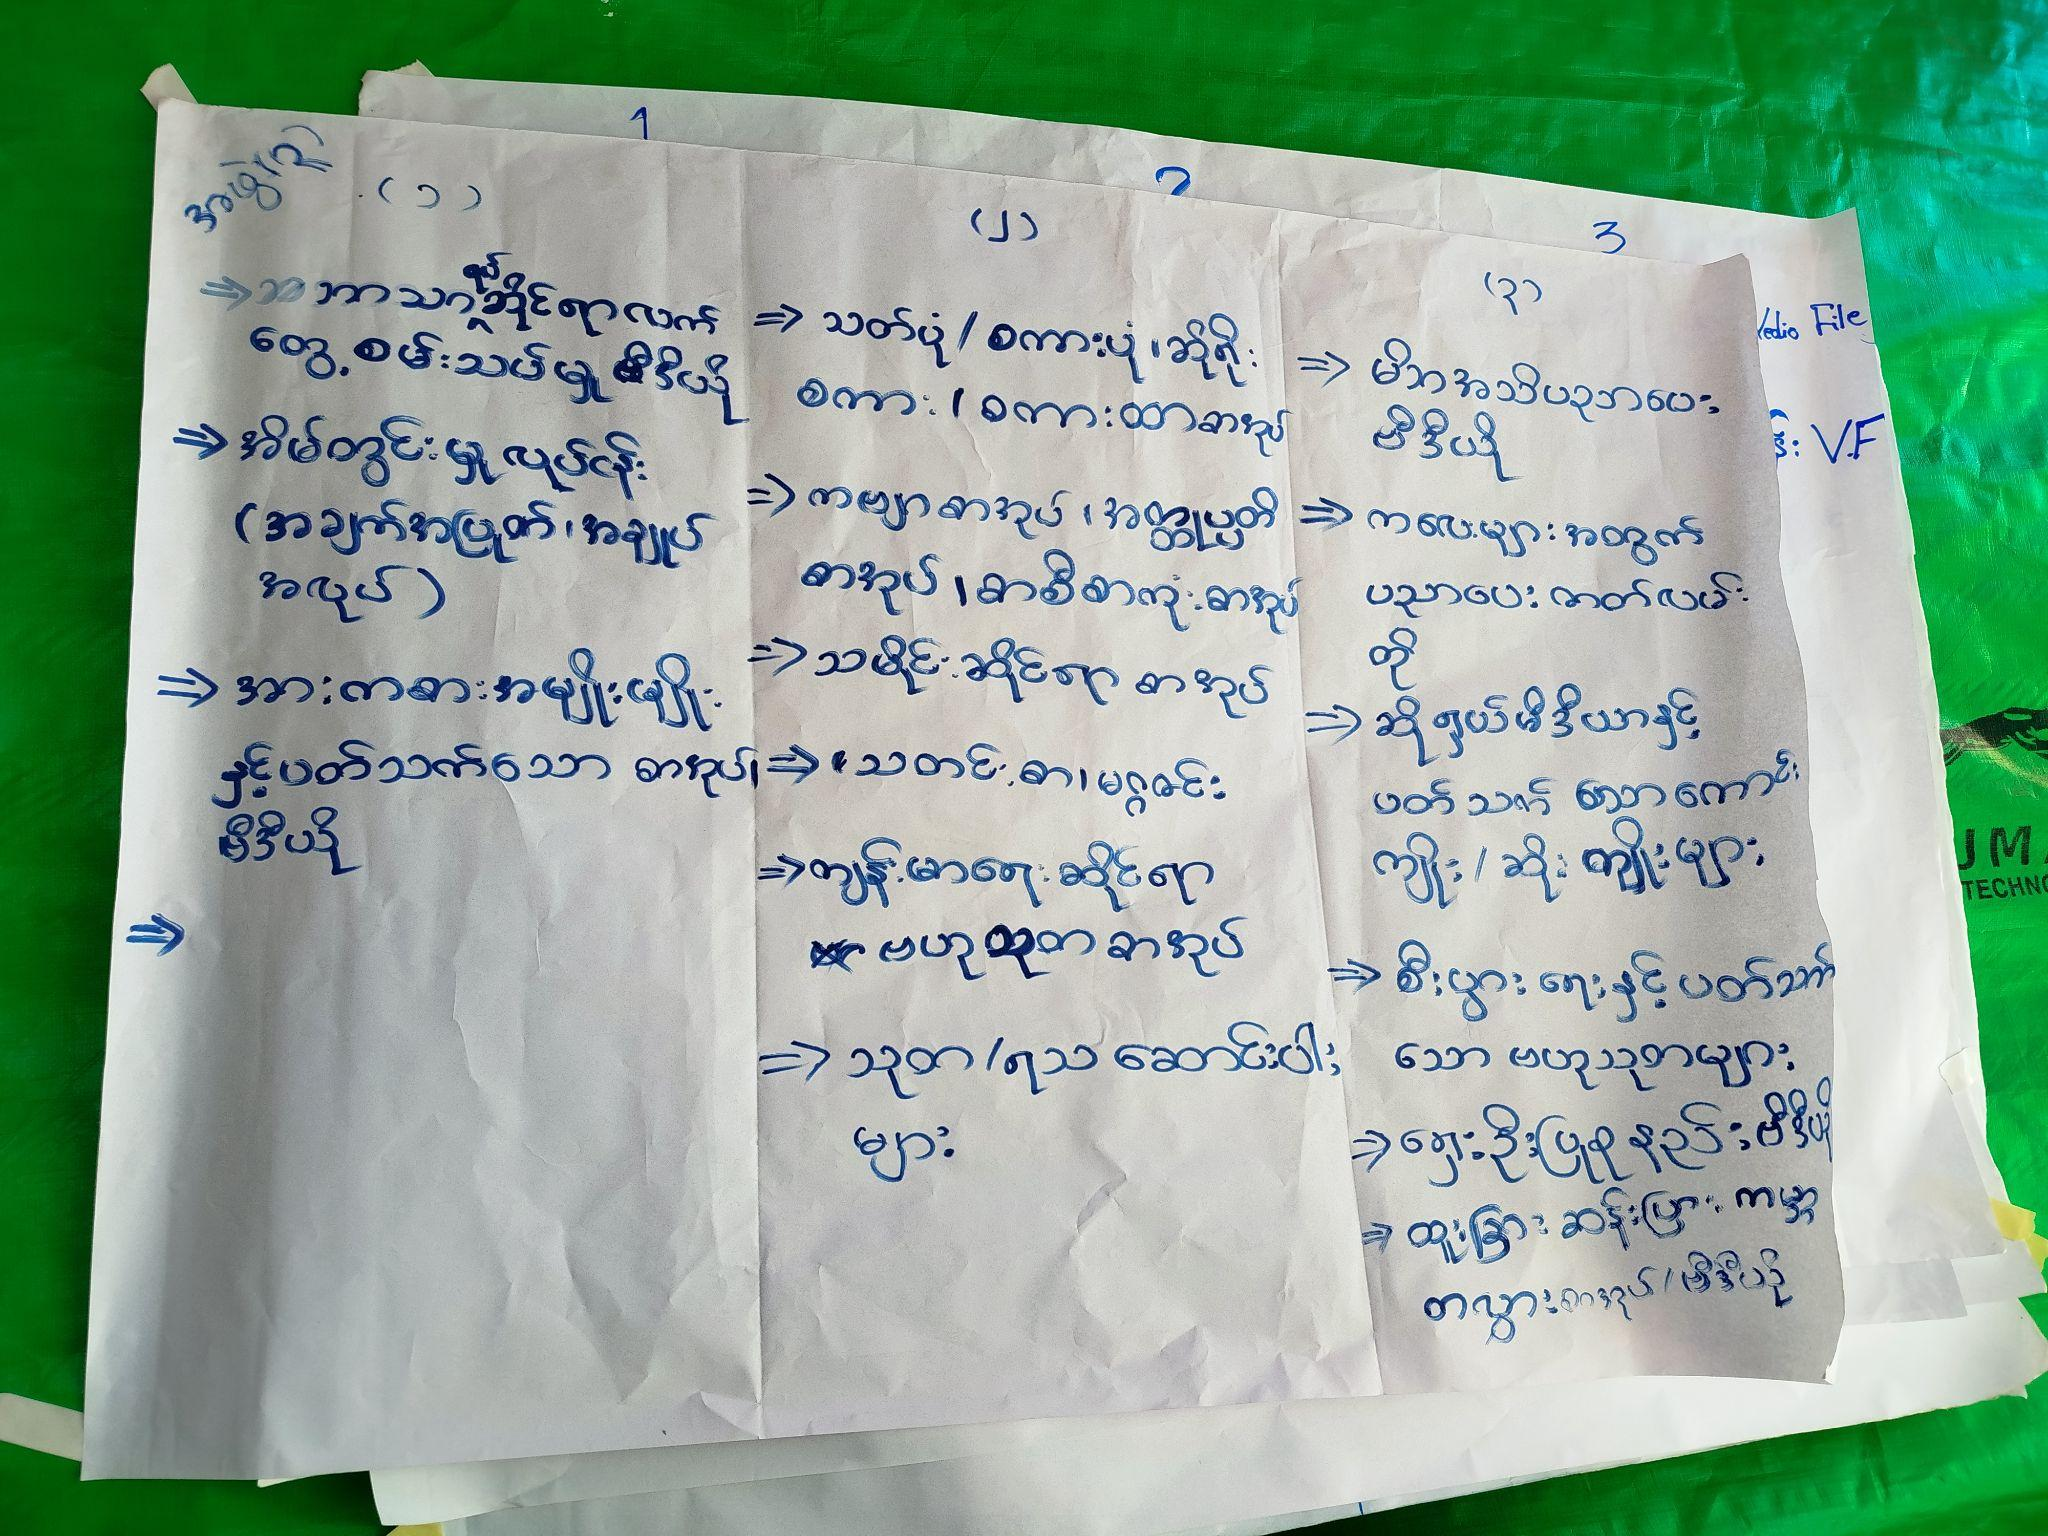 အဖွဲ့(၃)
(၁)
⇒ ဘာသာရပ်ဆိုင်ရာလက်
တွေ့စမ်းသပ်မှု ဗီဒီယို
⇒ အိမ်တွင်းမှုလုပ်ငန်း
(အချက်အပြုတ်၊ အချုပ်
အလုပ်)
⇒ အားကစားအမျိုးမျိုး
နှင့်ပတ်သက်သော စာအုပ်၊
ဗီဒီယို
⇒
(၂)
⇒ သတ်ပုံ / စကားပုံ၊ ဆိုရိုး
စကား / စကားထာစာအုပ်
⇒ ကဗျာစာအုပ်၊ အတ္ထုပ္ပတ္တိ
စာအုပ်၊ စာစီစာကုံးစာအုပ်
⇒ သမိုင်းဆိုင်ရာ စာအုပ်
⇒ သတင်းစာ၊ မဂ္ဂဇင်း
⇒ ကျန်းမာရေးဆိုင်ရာ
ဗဟုသုတ စာအုပ်
⇒ သုတ / ရသ ဆောင်းပါး
များ
(၃)
⇒ မိဘအသိပညာပေး
ဗီဒီယို
⇒ ကလေးများအတွက်
ပညာပေးဇာတ်လမ်း
တို
⇒ ဆိုရှယ်မီဒီယာနှင့်
ပတ်သက်သောကောင်း
ကျိုး / ဆိုးကျိုးများ
⇒ စီးပွားရေးနှင့်ပတ်သက်
သော ဗဟုသုတများ
⇒ ရှေးဦးပြုစုနည်းဗီဒီယို
⇒ ထူးခြားဆန်းပြား ကမ္ဘာ
တလွှားစာအုပ် / ဗီဒီယို
1
2
3
File
V.F
TECHNO